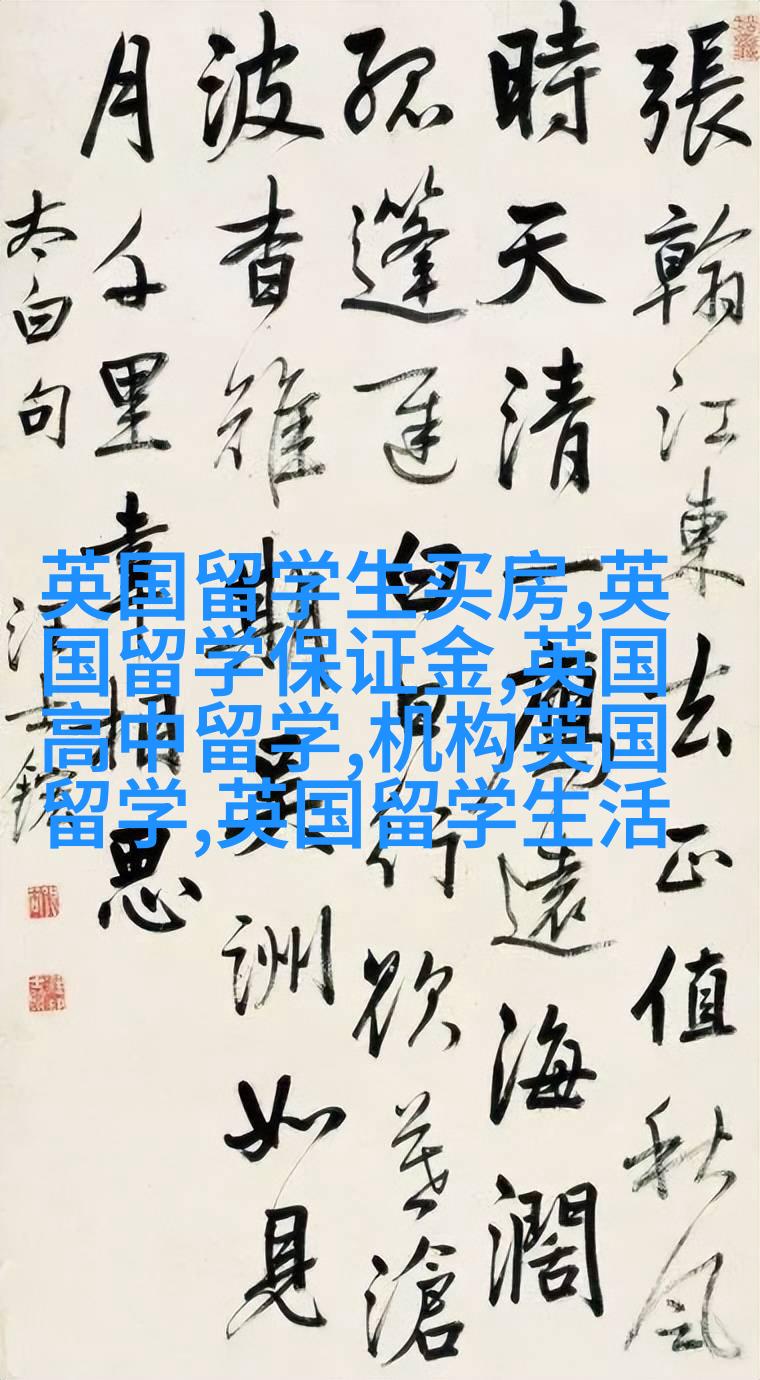 張翰江東去正值秋風
時天清一鴈遠海濶
孤篷遲白日行欲暮滄
波杳難期吳洲如見
月千里幸相思
太白句
汪士鋐
英国留学生买房,英
国留学保证金,英国
高中留学,机构英国
留学,英国留学生活